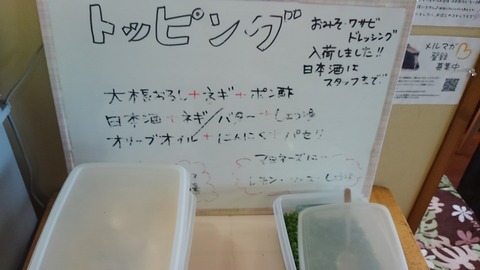 トッピング
おみそ・ワサビ
ドレッシング
入荷しました!!
日本酒は
スタッフまで
大根おろし+ネギ+ポン酢
日本酒+ネギ/バター+しょう油
オリーブオイル+にんにく+パセリ
メルマガ
登録
募集中